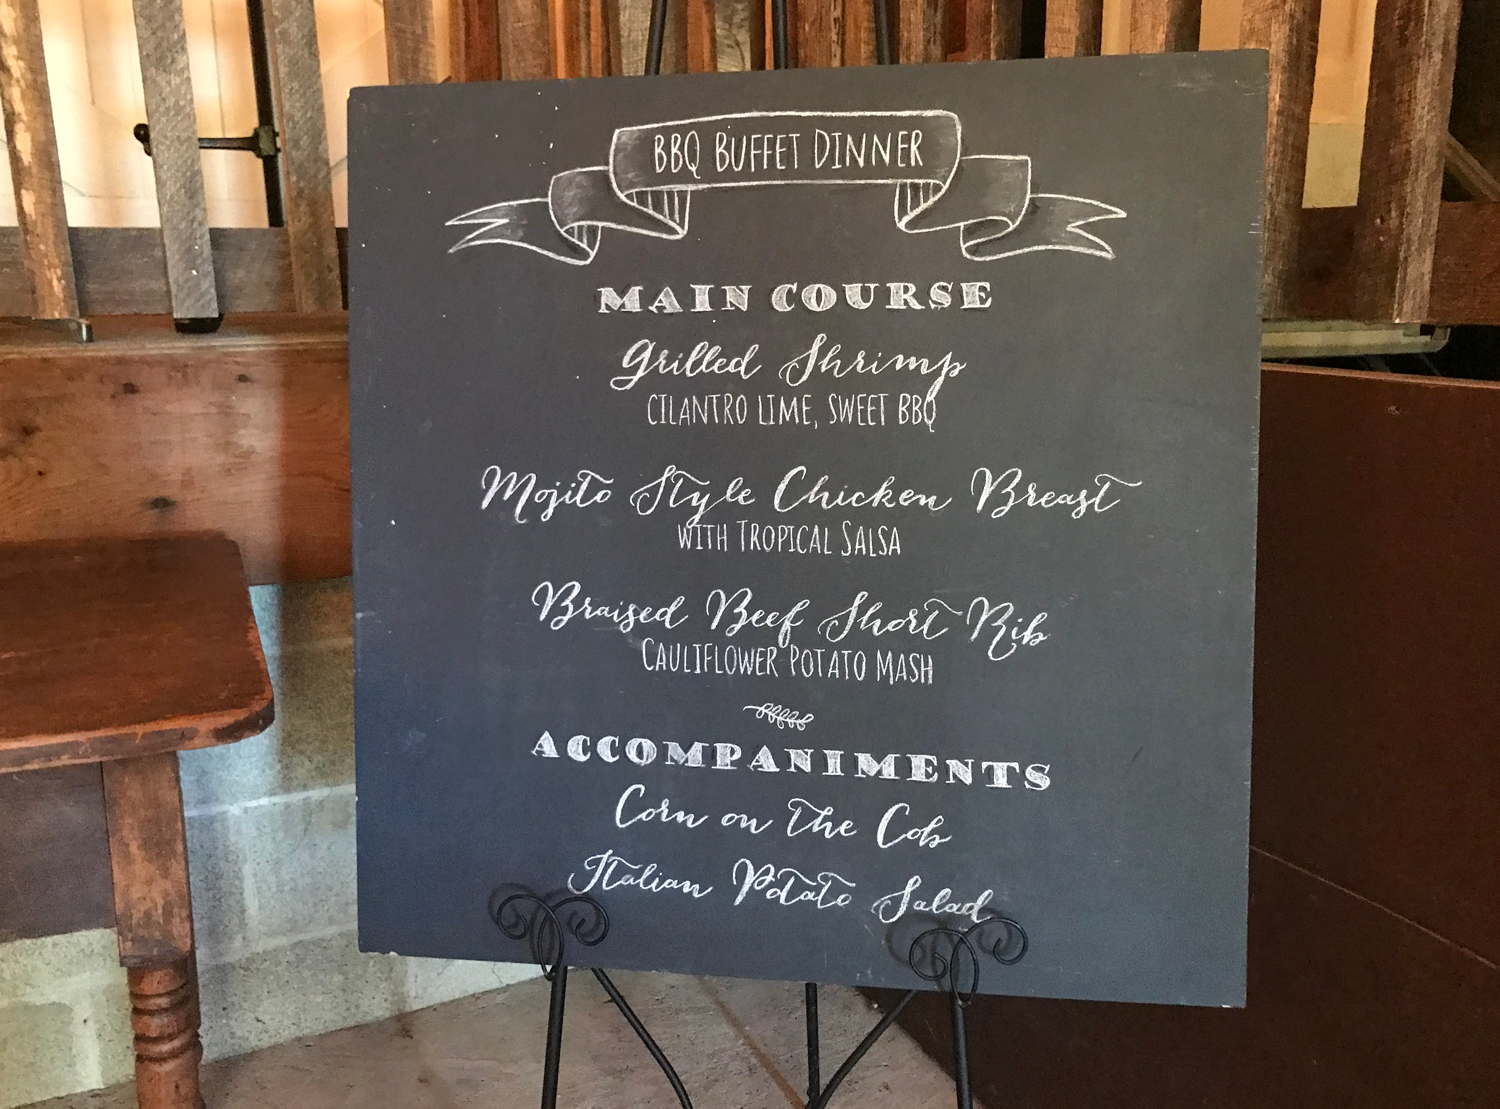 BBQ BUFFET DINNER
MAIN COURSE
Grilled Shrimp
CILANTRO LIME, SWEET BBQ
Mojito Style Chicken Breast
WITH TROPICAL SALSA
Braised Beef Short Rib
CAULIFLOWER POTATO MASH
ACCOMPANIMENTS
Corn on the Cob
Italian Potato Salad